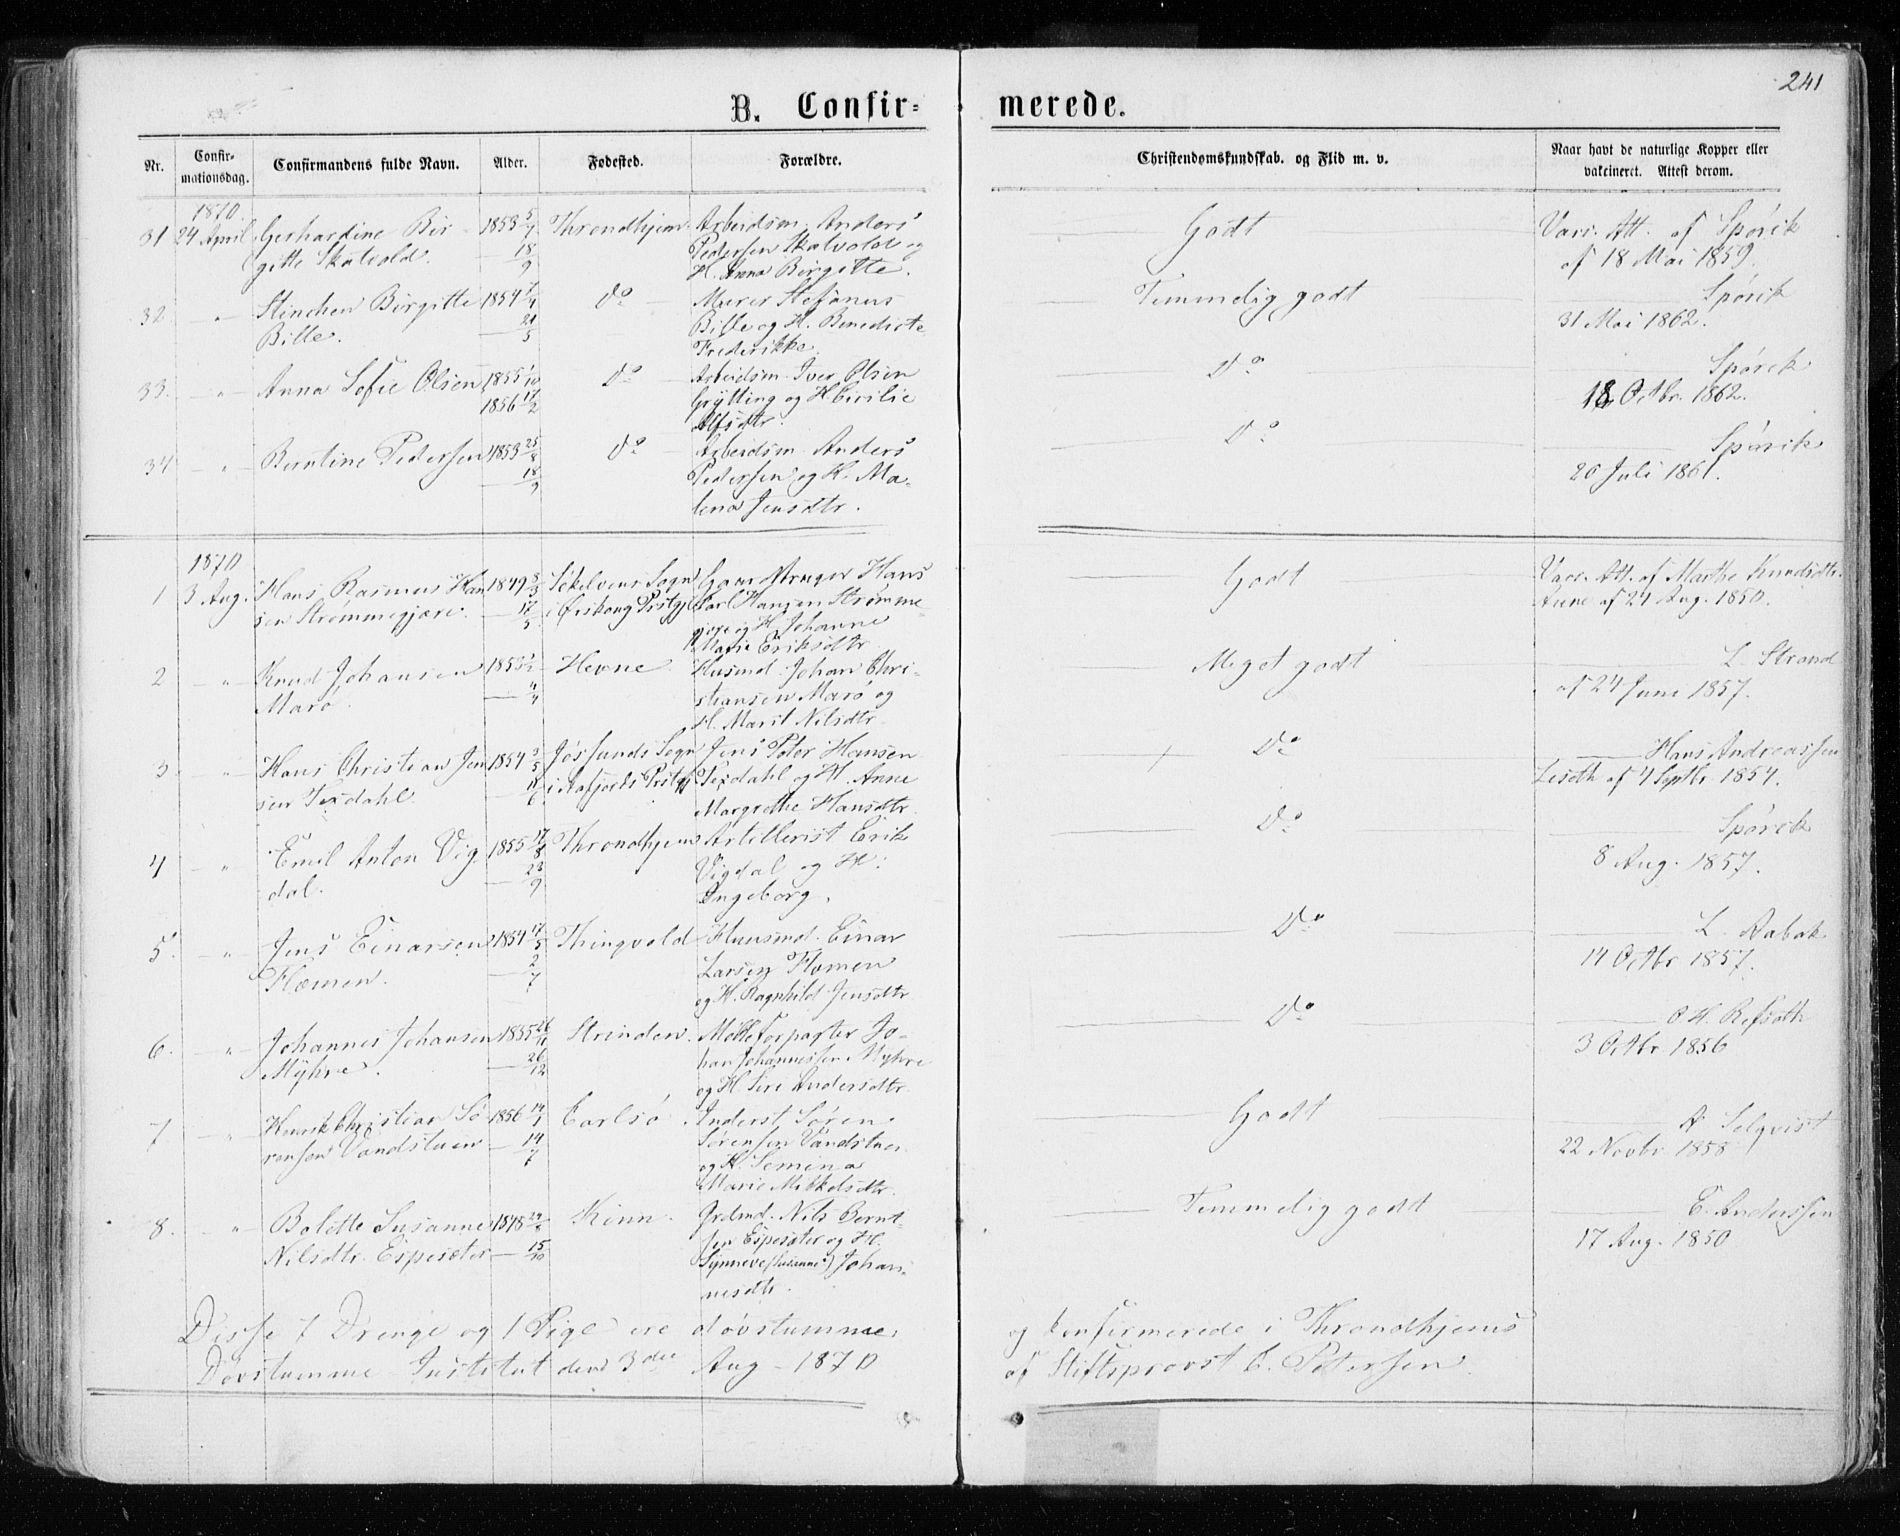 241
B. Confir-
merede.
Nr.
Confir-
mationsdag.
Confirmandens fulde Navn.
Alder.
Fødested.
Forældre.
Christendomskundskab. og Flid m. v.
Naar havt de naturlige Kopper eller
vakcineret. Attest derom.
1870.
31 24 April Gerhardine Bir- 1853 5/7 Throndhjem Arbeidsm. Anders Godt Vacc. Att. af Spørck
gitte Skalvold. — 18/9 Pedersen Skalvold og af 18 Mai 1859.
H. Anna Birgitte.
32 — „ Stinchen Birgitte 1854 7/4 Do Murer Stefanus Temmelig godt Spørck
Bille. — 21/5 Bille og H. Benedicte 31 Mai 1862.
Frederikke.
33. — „ Anna Sofie Olsen 1855 1/10 Do Arbeidsm. Iver Olsen Do Spørck
1856 17/2 Grytting og H. Cirilie 18 Octbr. 1862.
Alfsdtr.
34 — „ Berntine Pedersen 1853 25/8 Do Arbeidsm. Anders Do Spørck
— 18/9 Pedersen og H. Ma- 20 Juli 1861.
lena Jensdtr.
1870
1 3 Aug. Hans Rasmus Han 1849 3/5 Søkelvens Sogn Gaardbruger Hans Godt Vacc. Att. af Marthe Knudsdtr.
sen Strømmegjære. — 17/5 i Ørskoug Prstgjl. Carl Hansen Strømme- Aune af 24 Aug. 1850.
gjære og H. Johanne
Marie Eriksdtr
2 — „ Knud Johansen 1855 Hevne Husmd. Johan Chri- Meget godt L. Strand
Marø. — 4/4 stiansen Marø og af 24 Juni 1857.
H. Marit Nilsdtr.
3. — „ Hans Christian Jen 1854 3/5 Jøssunds Sogn Jens Peter Hansen Do Hans Andreassen
sen Texdahl. — 11/6 i Aafjords Prstgjl. Texdahl og H. Anne af 4 Septbr. 1854.
Margrethe Hansdtr.
4 — „ Emil Anton Vig- 1855 17/8 Throndhjem Artillerist Erik Do Spørck
dal. — 23/9 Vigdal og H. 8 Aug. 1857.
Ingeborg.
5. — „ Jens Einarsen 1854 17/5 Thingvold Huusmd. Einar Do L. Aabak
Flæmen. — 2/7 Larsen Flæmen 14 Octbr. 1857.
og H. Ragnhild Jensdtr.
6. — „ Johannes Johansen 1855 26/11 Strinden. Mølleforpagter Jo- Do O H. Refseth
Myhre. — 26/12 han Johannessen Myhre 3 Octbr. 1856
og H. Siri Andersdtr.
7 — „ Henrik Christian Sø- 1856 14/1 Carlsø. Inderst Søren Godt A. Selqvist
rensen Vandstuen — 14/7 Sørensen Vandstuen 22 Novbr. 1858
og H. Semina
Marie Mikkelsdtr.
8. „ Bolette Susanne 1848 29/8 Kinn. Grdmd. Nils Bernt- Temmelig godt E. Anderssen
Nilsdtr. Espesæter — 15/10 sen Espesæter og H. 17 Aug. 1850
Synneve (Susanne) Johan-
nesdtr.
Disse 7 Drenge og 1 Pige ere døvstumme og konfirmerede i Throndhjems
Døvstumme-Institut den 3die Aug. 1870 af Stiftsprovst C. Petersen.